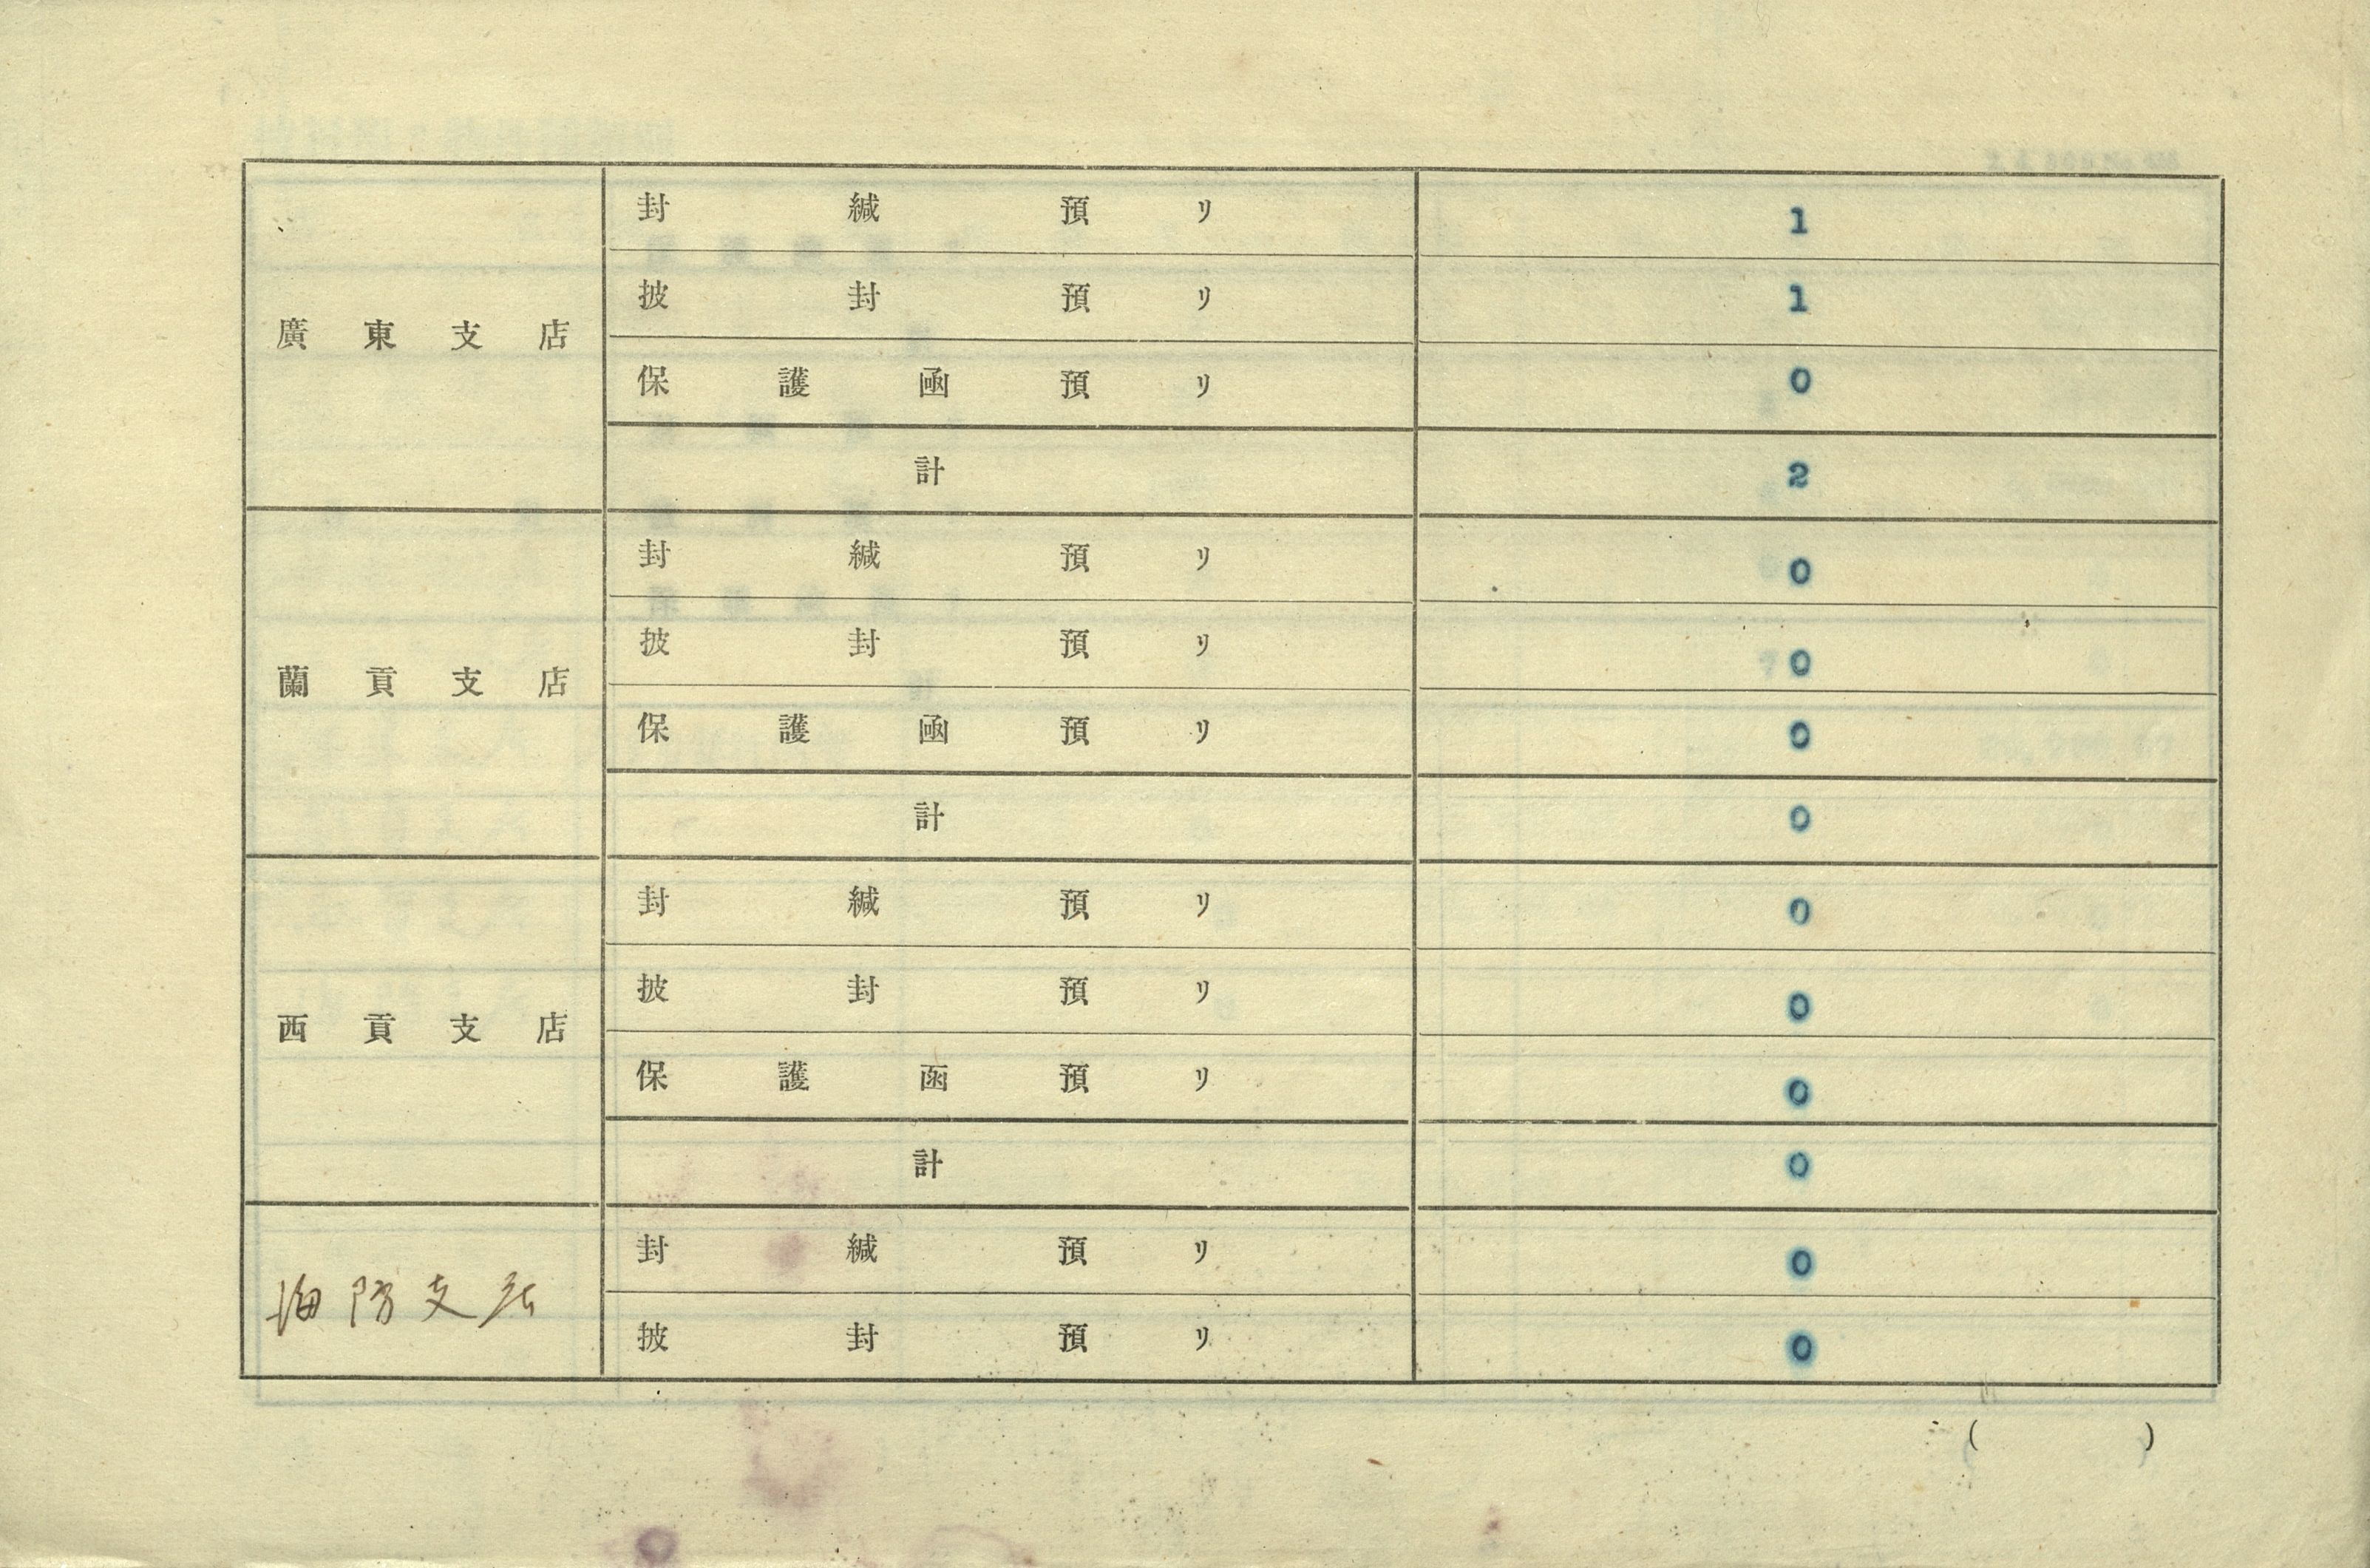 廣東支店
封緘預リ 1
披封預リ 1
保護凾預リ 0
計 2
蘭貢支店
封緘預リ 0
披封預リ 0
保護凾預リ 0
計 0
西貢支店
封緘預リ 0
披封預リ 0
保護函預リ 0
計 0
海防支店
封緘預リ 0
披封預リ 0
( )